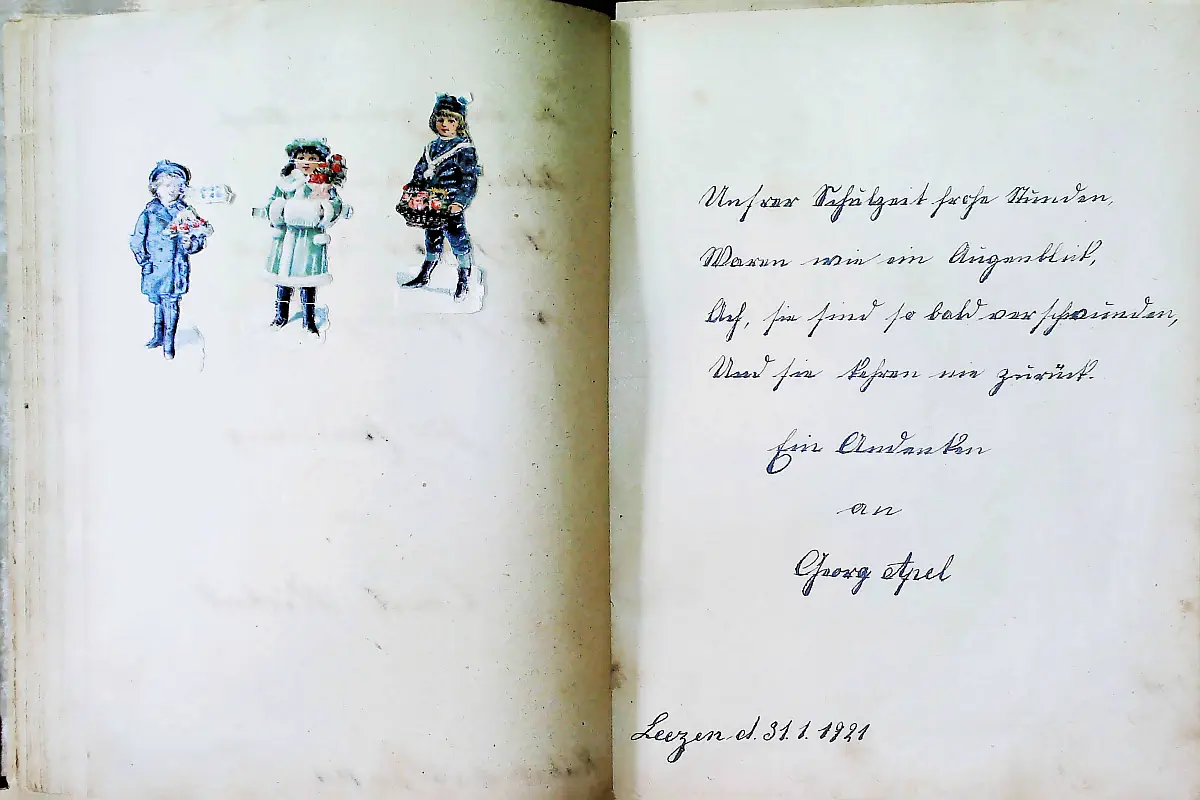 Unsrer Schulzeit frohe Stunden,
Waren wie ein Augenblick,
Ach, sie sind so bald verschwunden,
Und sie kehren nie zurück.
Ein Andenken
an
Georg Apel
Leezen d. 31.1.1921